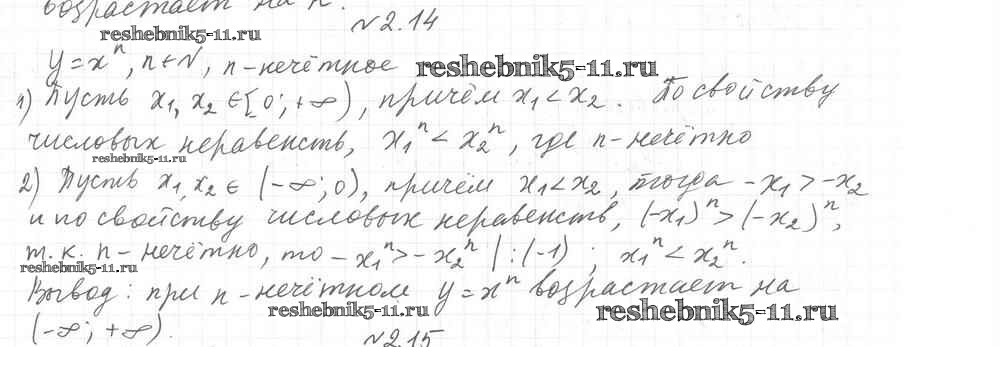 возрастает на R.
№2.14
reshebnik5-11.ru
y = xⁿ, n ∈ N, n - нечётное reshebnik5-11.ru
1) Пусть x₁, x₂ ∈ [0; +∞), причём x₁ < x₂. По свойству
числовых неравенств, x₁ⁿ < x₂ⁿ, где n - нечётно
reshebnik5-11.ru
2) Пусть x₁, x₂ ∈ (-∞; 0), причём x₁ < x₂, тогда -x₁ > -x₂
и по свойству числовых неравенств, (-x₁)ⁿ > (-x₂)ⁿ,
т.к. n - нечётно, то -x₁ⁿ > -x₂ⁿ | : (-1) ; x₁ⁿ < x₂ⁿ.
reshebnik5-11.ru
Вывод: при n - нечётном y = xⁿ возрастает на
reshebnik5-11.ru reshebnik5-11.ru
(-∞; +∞).
№2.15